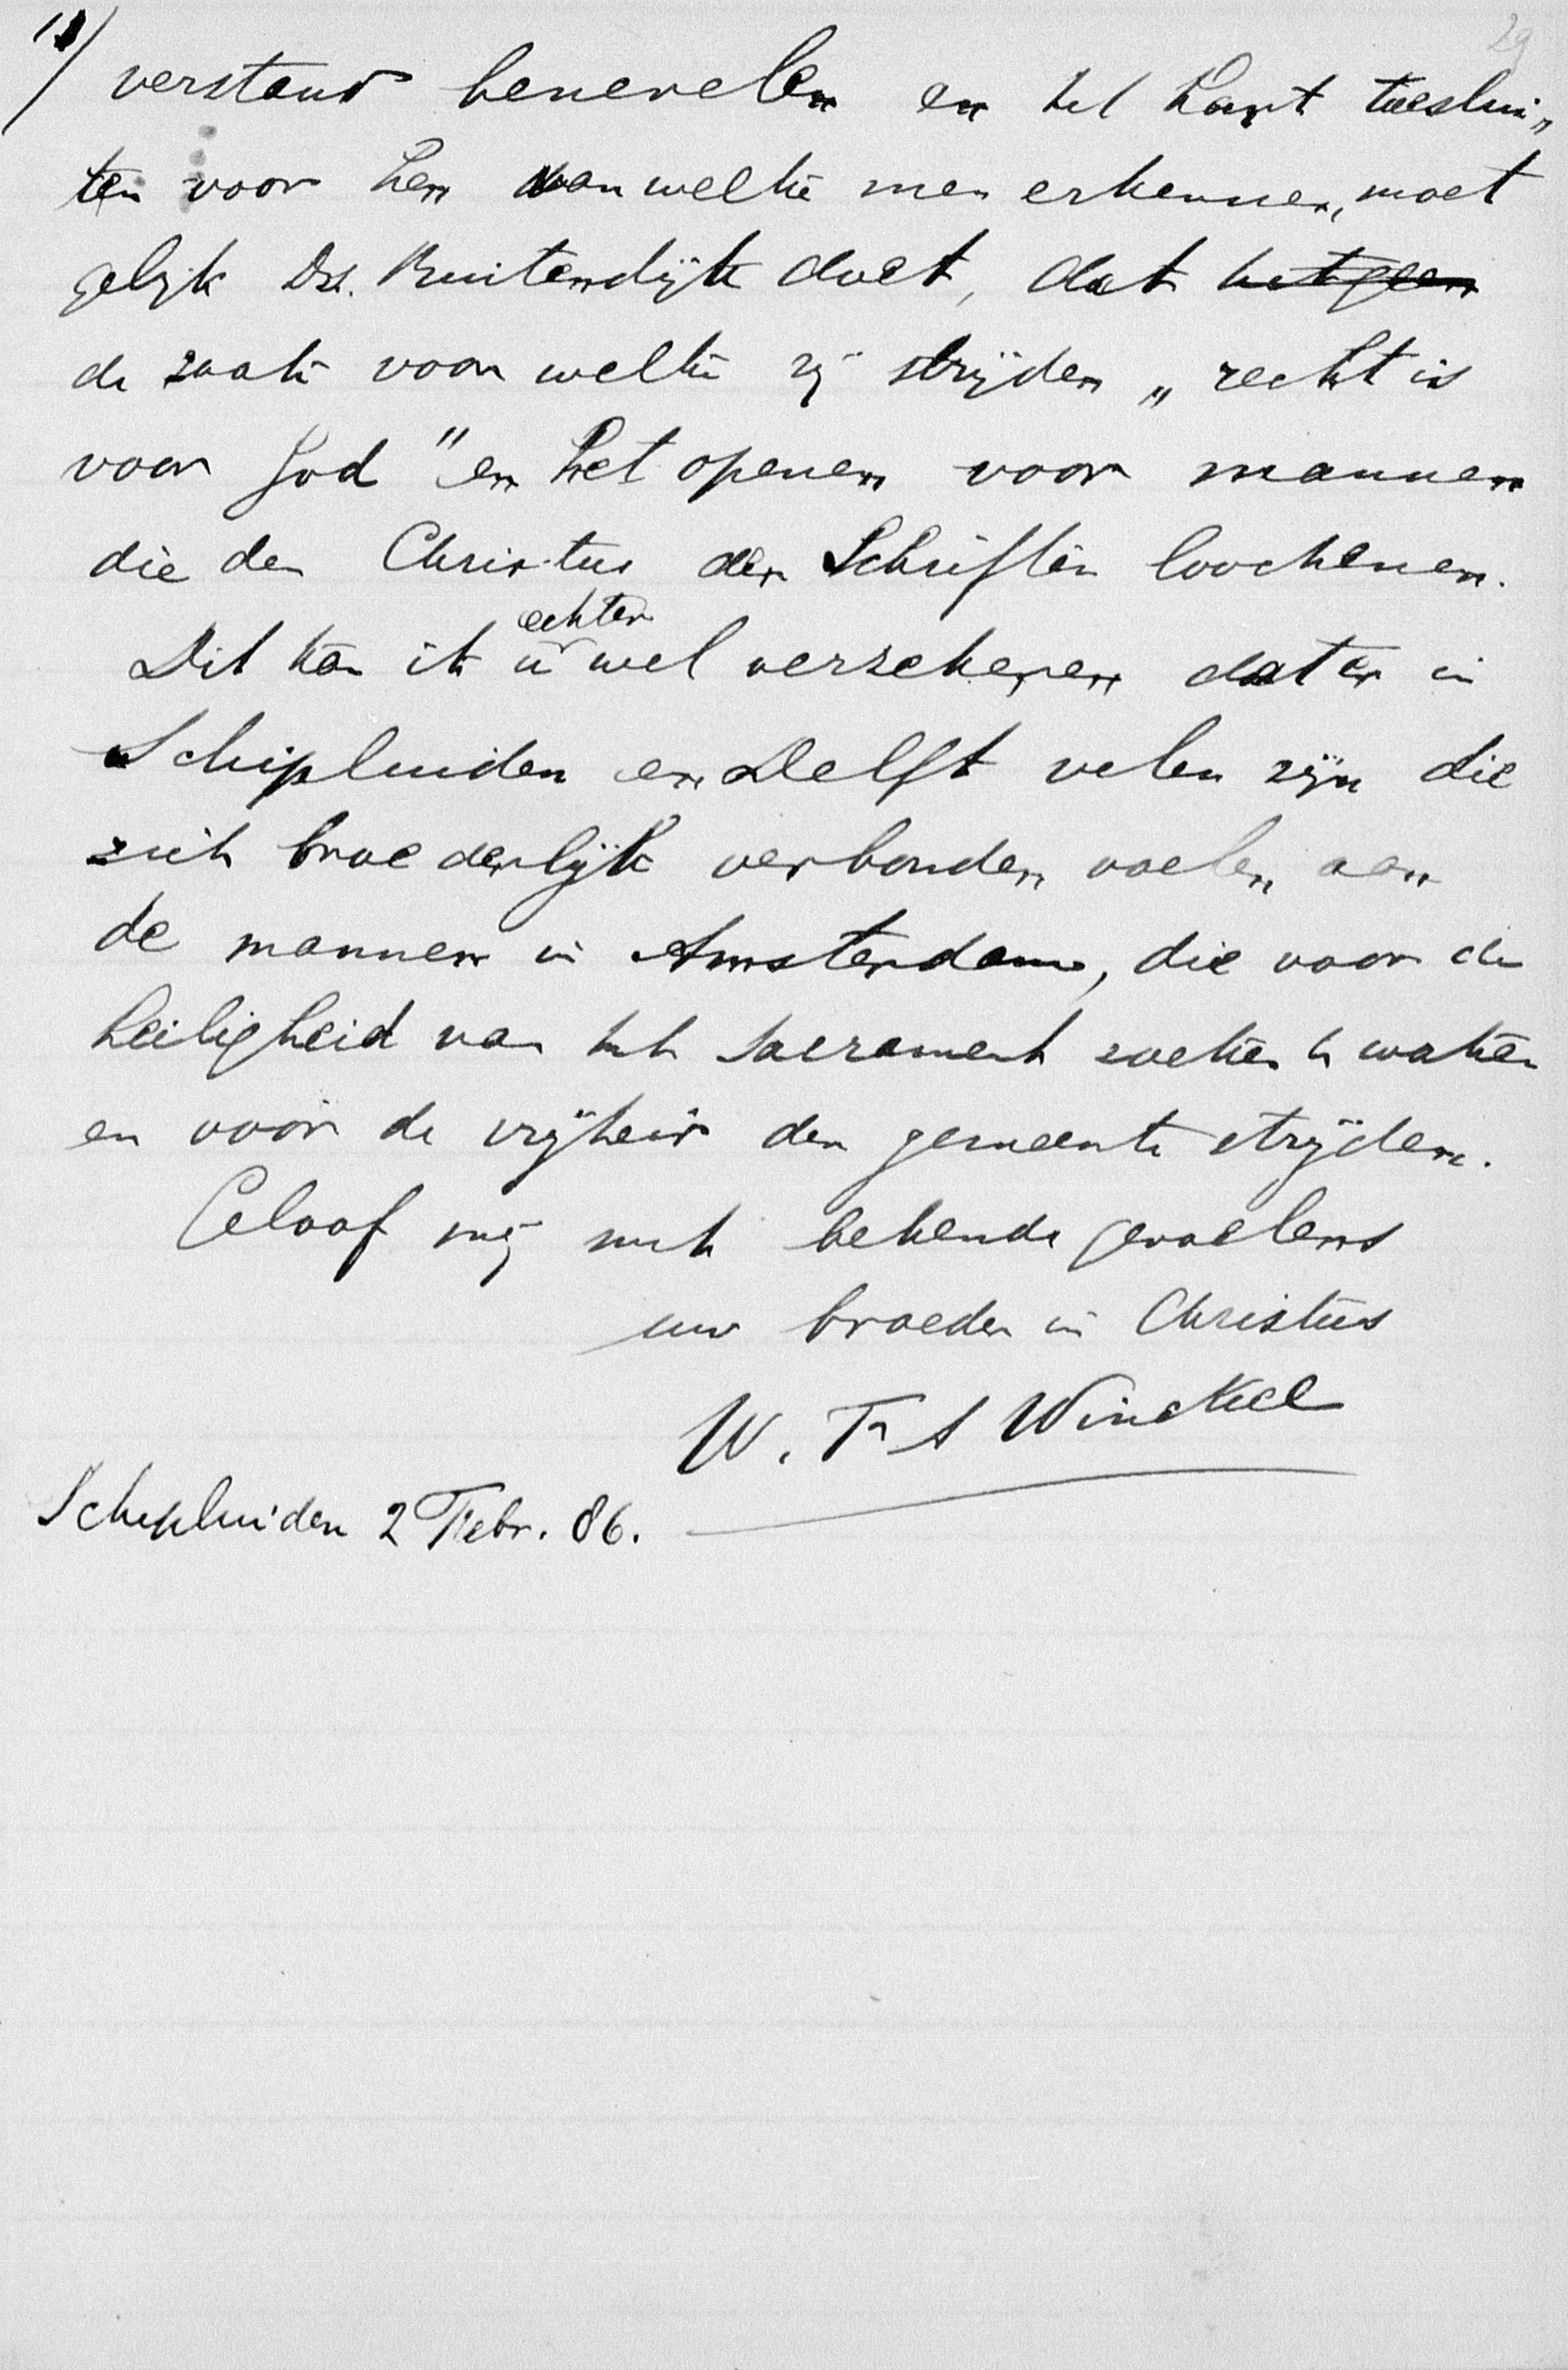 29
verstand benevelen en het hart toeslui„
ten voor hen van welke men erkennen, moet
gelijk Ds. Buitendijk doet, dat hetgeen
de zaak voor welke zij strijden „recht is
voor God" en het openen voor mannen
die den Christus der Schriften loochenen.
echter
Dit kan ik u wel verzekeren dat er in
Schipluiden en Delft velen zijn die
zich broederlijk verbonden voelen aan
de mannen in Amsterdam, die voor de
heiligheid van het Sacrament zoeken te waken
en voor de vrijheid der gemeente strijden.
Geloof mij met bekende gevoelens
uw broeder in Christus
W. F. A Winckel
Schipluiden 2 Febr. 86.